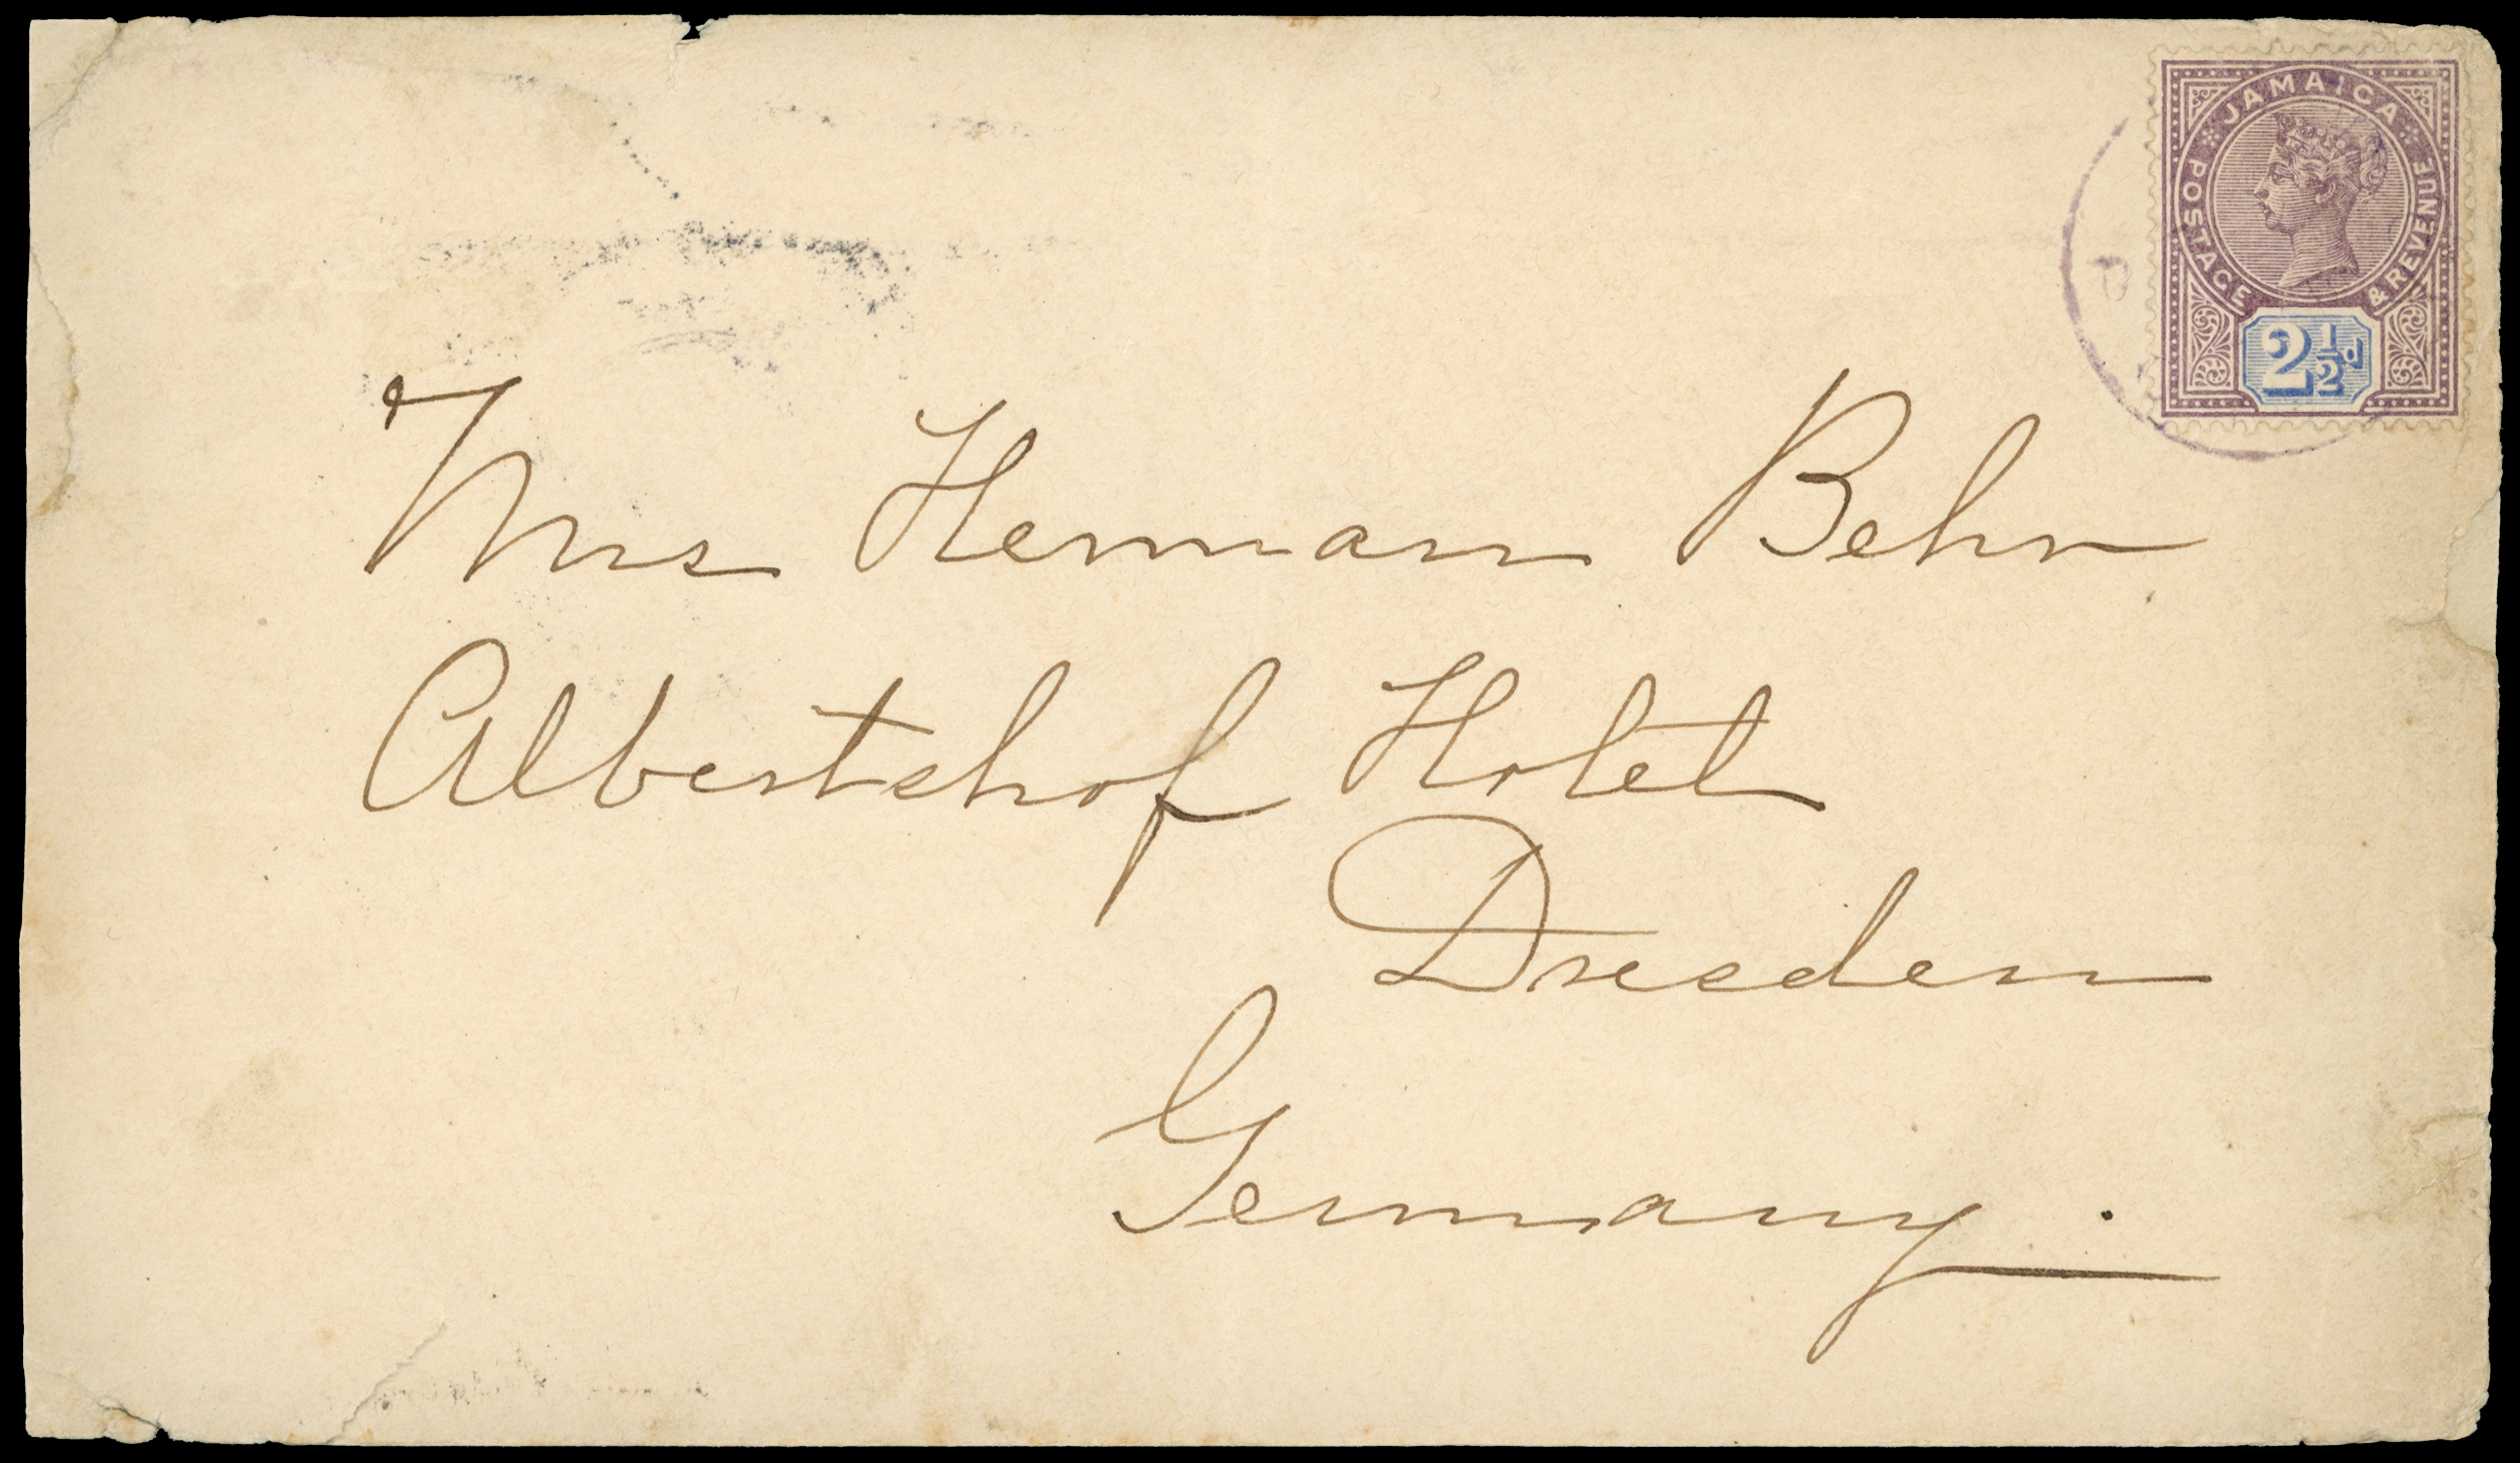 JAMAICA
POSTAGE & REVENUE
2½d
Mrs Herman Behn
Albertshof Hotel
Dresden
Germany.